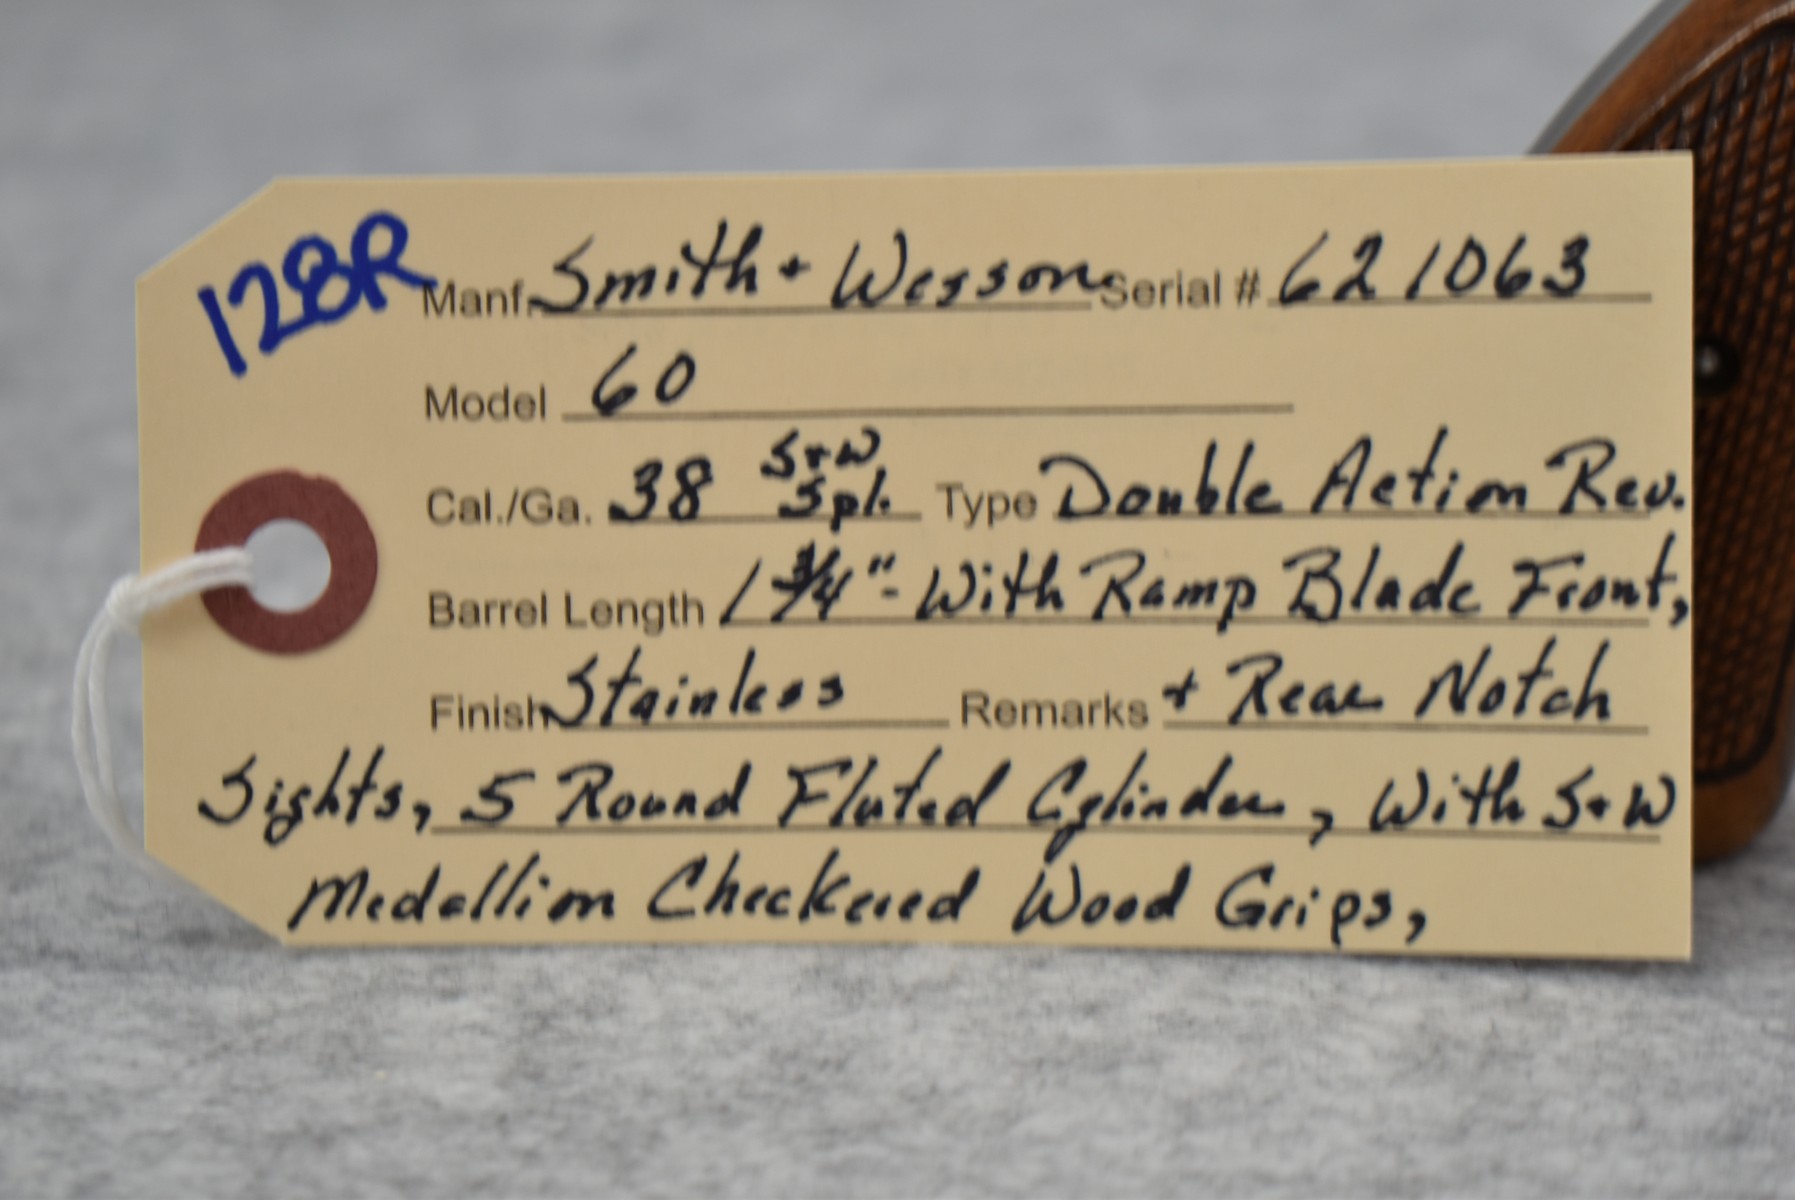 128R
Manf. Smith + Wesson Serial # 621063
Model 60
Cal./Ga. 38 S+W Spl. Type Double Action Rev.
Barrel Length 1 3/4"- With Ramp Blade Front,
Finish Stainless Remarks + Rear Notch
Sights, 5 Round Fluted Cylinder, With S+W
Medallion Checkered Wood Grips,